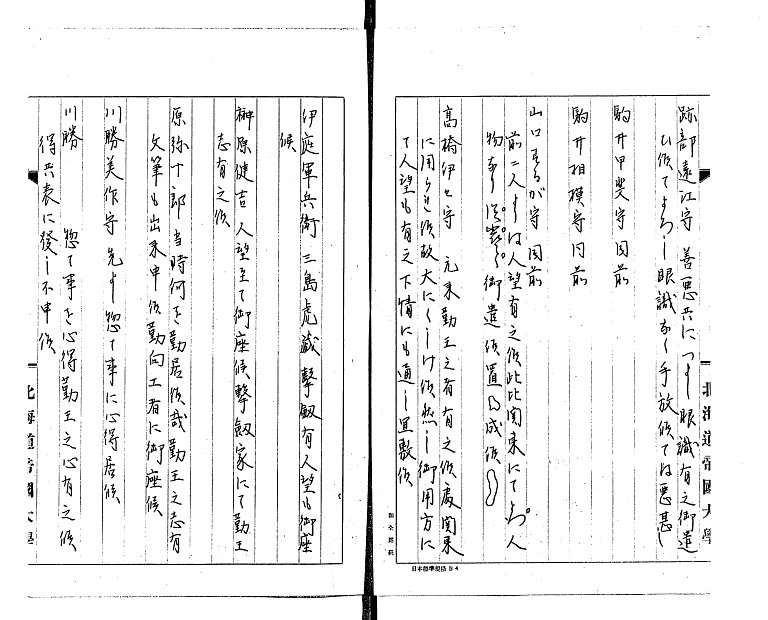 跡部遠江守 善悪共につよく眼識有之御遣
ひ候てよろし眼識なく手放候ては悪甚し
駒井甲斐守同前
駒井相模守同前
山口するが守同前
前二人よりは人望有之候此比関東にてよろ敷人
物なり 御遣候置 成候
高橋伊セ守 元来勤王之者有之候處関東
に用られ候故大にくじけ候然し御用方に
て人望も有之下情にも通し宜敷候
伊庭軍兵衛 三島虎蔵 撃劔有人望も御座
候
榊原健吉 人望至て御座候撃劔家にて勤王
志有之候
原弥十郎 当時何を勤居候哉勤王之志有
文筆も出来申候勤向工者に御座候
川勝美作守 先よく惣て事に心得居候
川勝 惣て事を心得勤王之心有之候
得共表に發し不申候
北海道帝國大學
北海道帝國大學
日本標準規格 B4